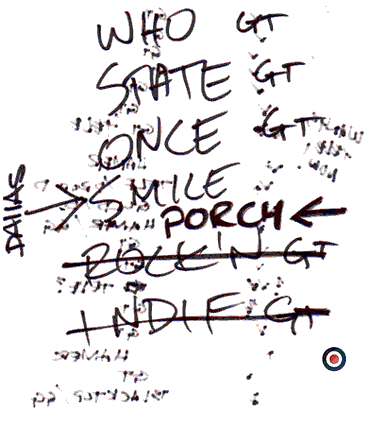 WHO GT
STATE GT
ONCE GT
DALLAS → SMILE
PORCH ←
ROCK'N GT
INDIE GT